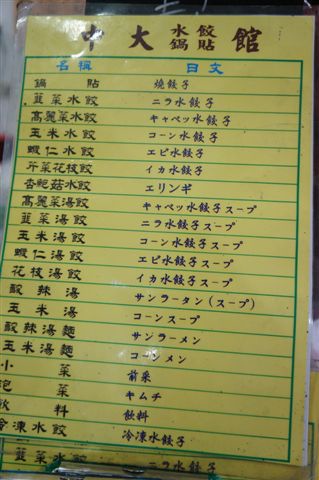 中大水餃鍋貼館
名稱 日文
鍋貼 燒餃子
韮菜水餃 ニラ水餃子
高麗菜水餃 キャベッ水餃子
玉米水餃 コーン水餃子
蝦仁水餃 エビ水餃子
芹菜花枝餃 イカ水餃子
杏鮑菇水餃 エリンギ
高麗菜湯餃 キャベッ水餃子スープ
韮菜湯餃 ニラ水餃子スープ
玉米湯餃 コーン水餃子スープ
蝦仁湯餃 エビ水餃子スープ
花枝湯餃 イカ水餃子スープ
酸辣湯 サンラータン(スープ)
玉米湯 コーンスープ
酸辣湯麵 サンラーメン
玉米湯麵 コーンメン
小菜 前采
泡菜 キムチ
飲料 飲料
冷凍水餃 冷凍水餃子
韮菜水餃 ニラ水餃子